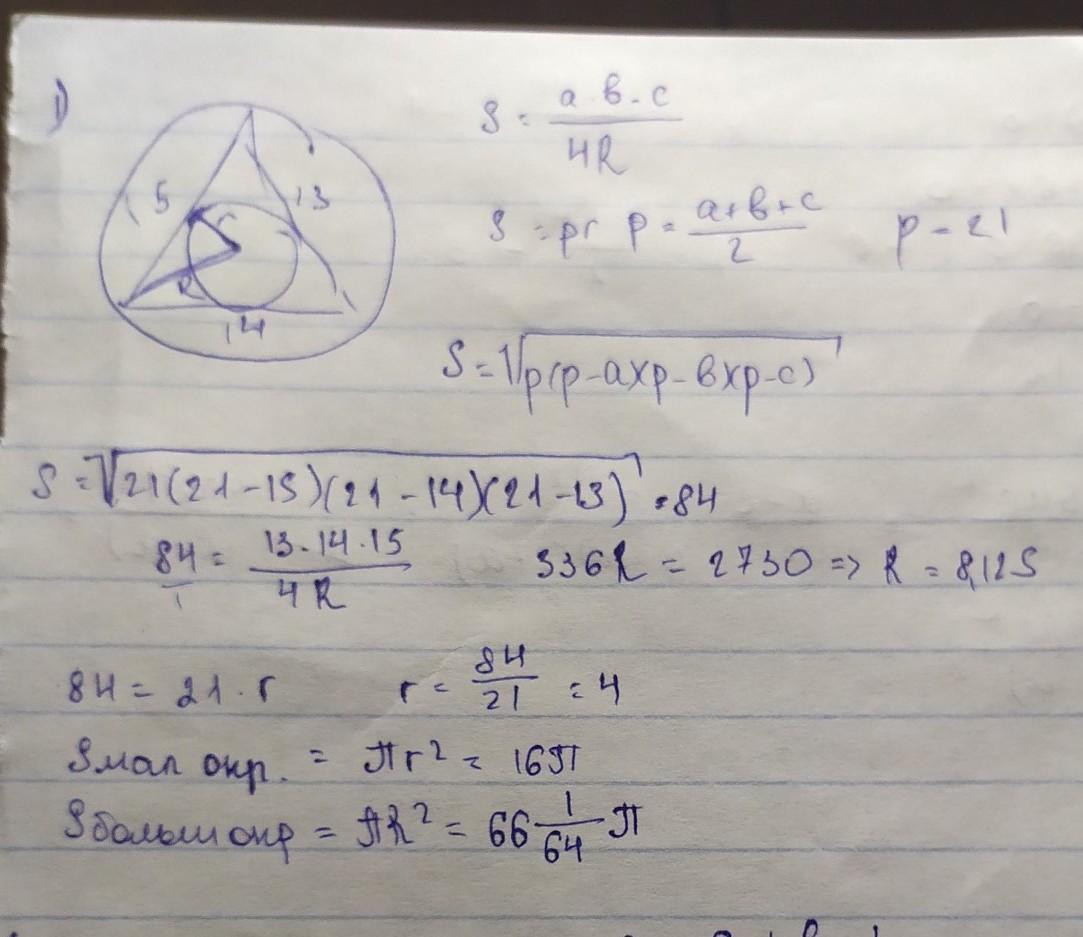 1)
S = a·b·c / 4R
15 r 13
R
14
S = pr p = a+b+c / 2 p = 21
S = √p(p-a)(p-b)(p-c)
S = √21(21-15)(21-14)(21-13) = 84
84 / 1 = 13·14·15 / 4R 336R = 2730 => R = 8,125
84 = 21·r r = 84 / 21 = 4
S мал окр. = πr² = 16π
S больш окр = πR² = 66 1/64 π